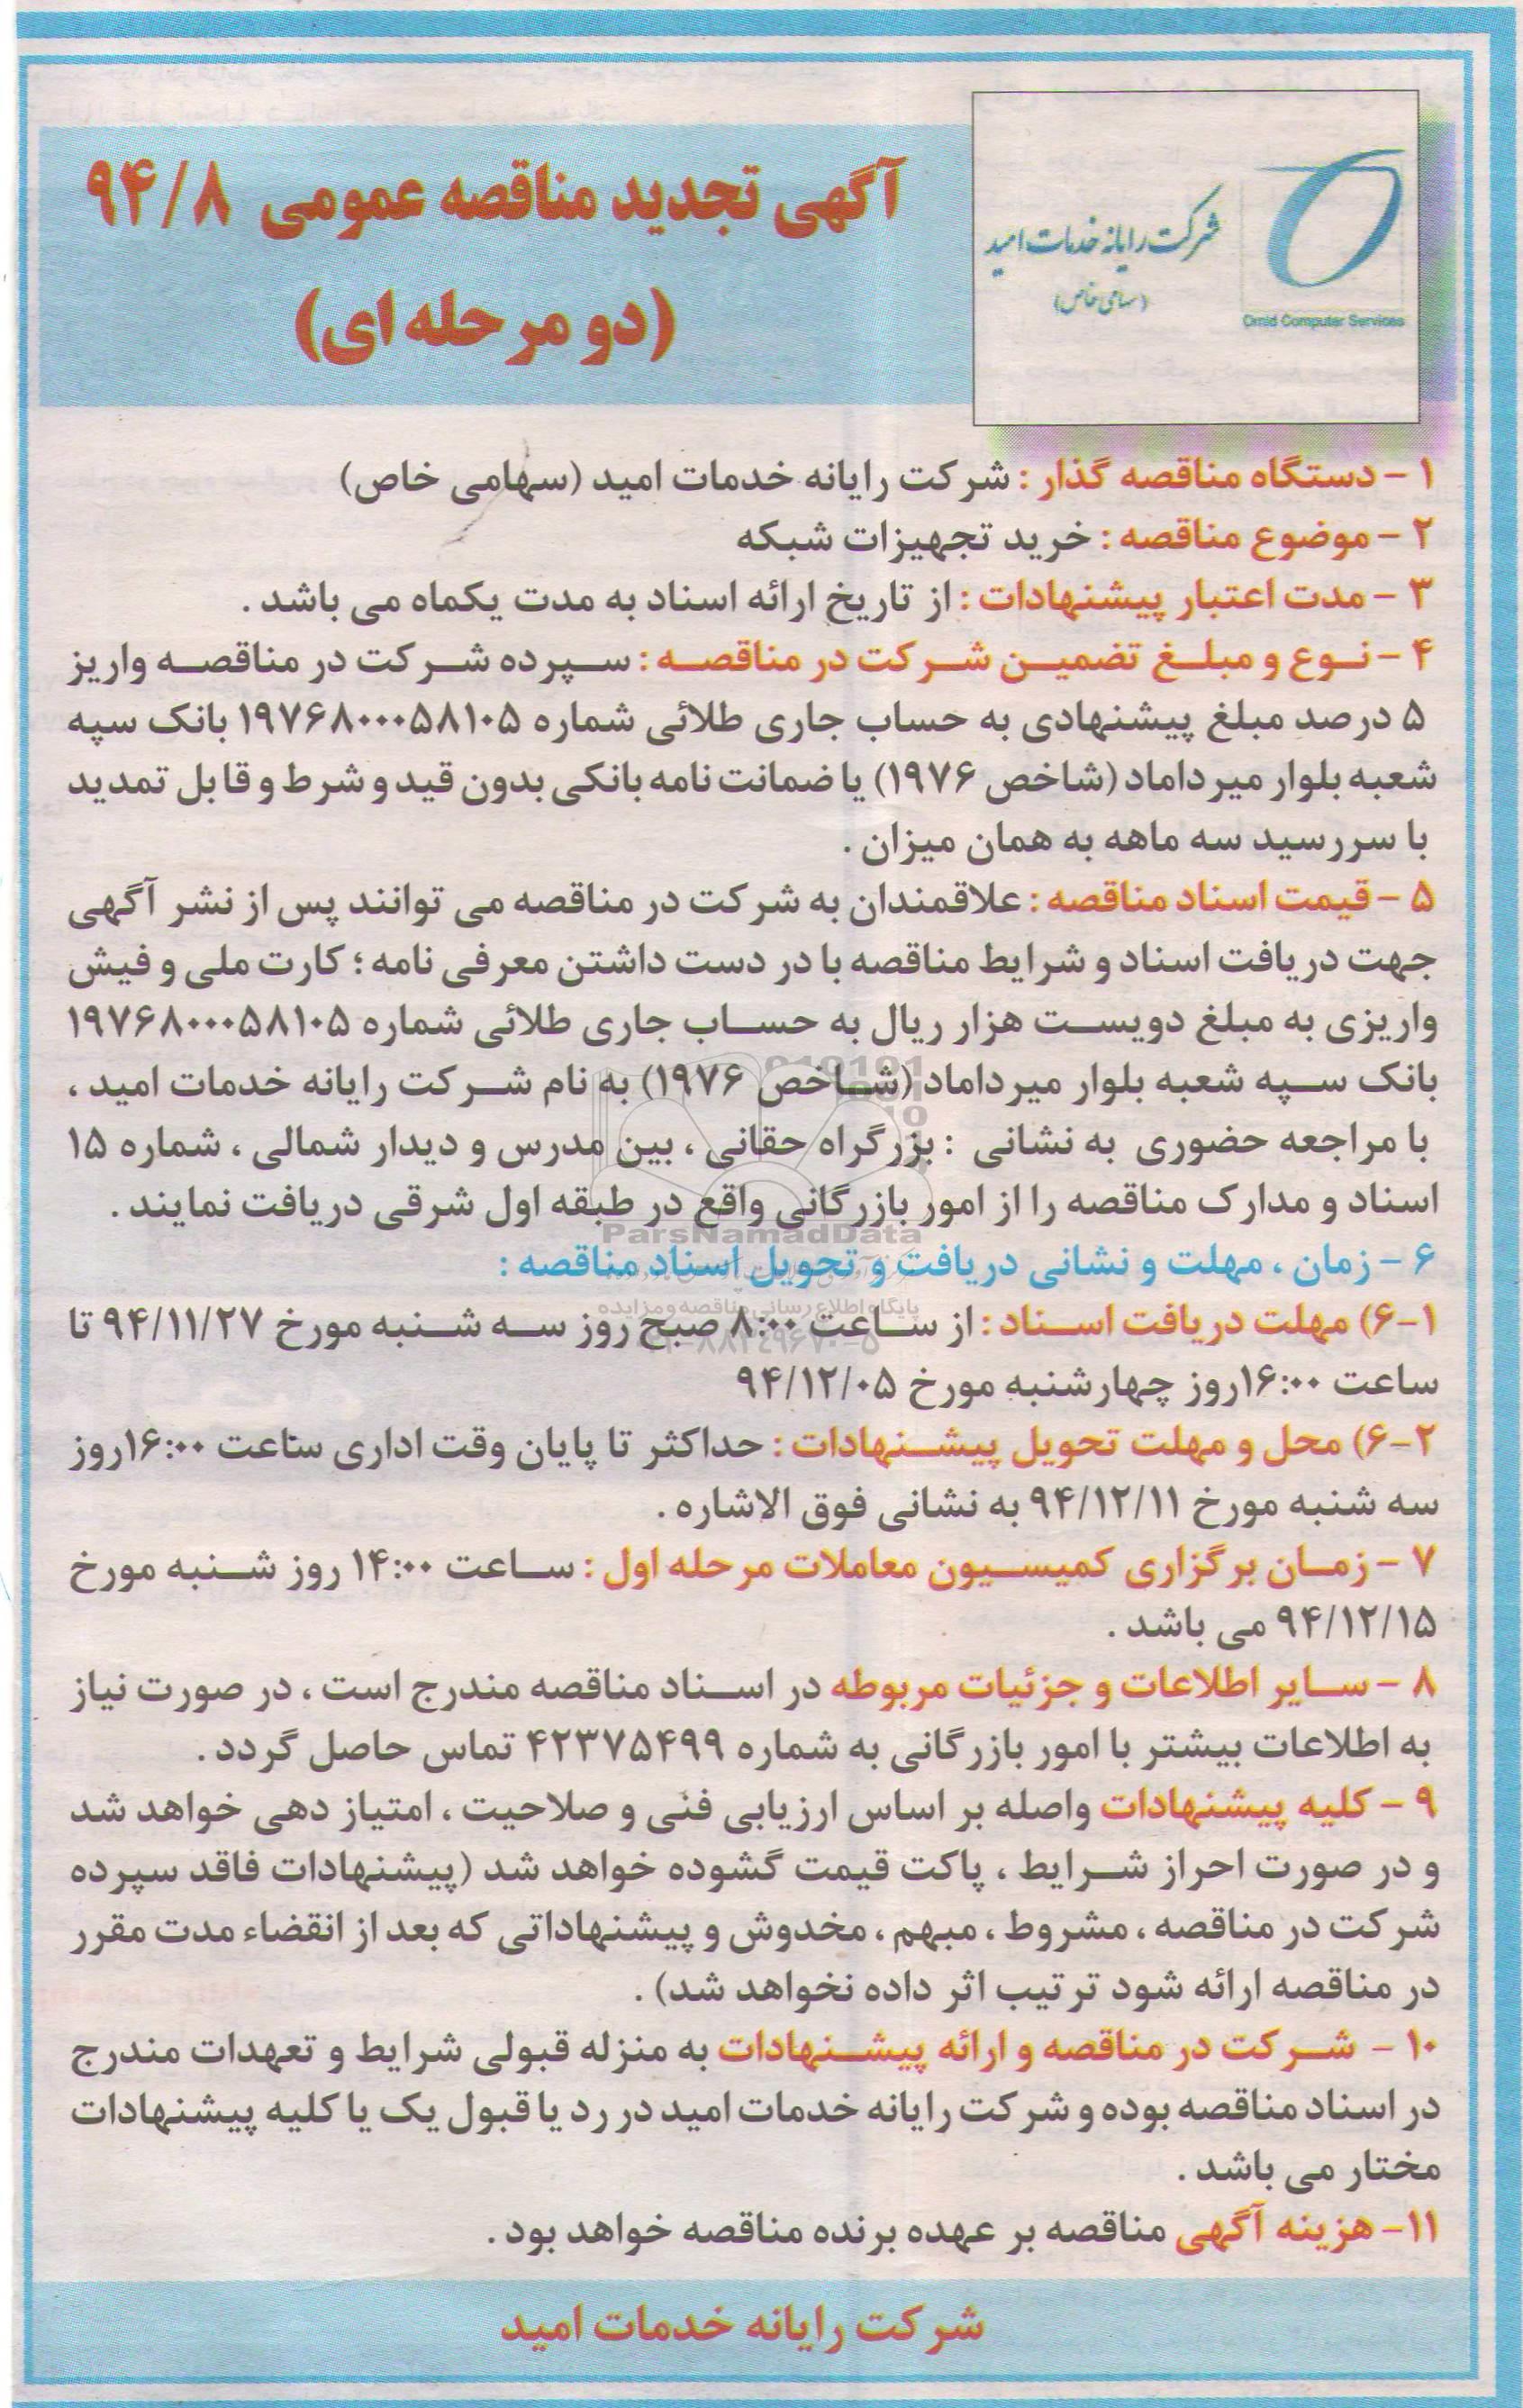 شرکت رایانه خدمات امید
(سهامی خاص)
Omid Computer Services
آگهی تجدید مناقصه عمومی ۹۴/۸
(دو مرحله ای)
۱ - دستگاه مناقصه گذار : شرکت رایانه خدمات امید (سهامی خاص)
۲ - موضوع مناقصه : خرید تجهیزات شبکه
۳ - مدت اعتبار پیشنهادات : از تاریخ ارائه اسناد به مدت یکماه می باشد .
۴ - نوع و مبلغ تضمین شرکت در مناقصه : سپرده شرکت در مناقصه واریز
۵ درصد مبلغ پیشنهادی به حساب جاری طلائی شماره ۱۹۷۶۸۰۰۰۵۸۱۰۵ بانک سپه
شعبه بلوار میرداماد (شاخص ۱۹۷۶) یا ضمانت نامه بانکی بدون قید و شرط و قابل تمدید
با سررسید سه ماهه به همان میزان .
۵ - قیمت اسناد مناقصه : علاقمندان به شرکت در مناقصه می توانند پس از نشر آگهی
جهت دریافت اسناد و شرایط مناقصه با در دست داشتن معرفی نامه ؛ کارت ملی و فیش
واریزی به مبلغ دویست هزار ریال به حساب جاری طلائی شماره ۱۹۷۶۸۰۰۰۵۸۱۰۵
بانک سپه شعبه بلوار میرداماد (شاخص ۱۹۷۶) به نام شرکت رایانه خدمات امید ،
با مراجعه حضوری به نشانی : بزرگراه حقانی ، بین مدرس و دیدار شمالی ، شماره ۱۵
اسناد و مدارک مناقصه را از امور بازرگانی واقع در طبقه اول شرقی دریافت نمایند .
ParsNamadData
۶ - زمان ، مهلت و نشانی دریافت و تحویل اسناد مناقصه :
پایگاه اطلاع رسانی مناقصه و مزایده
۶-۱) مهلت دریافت اسناد : از ساعت ۸:۰۰ صبح روز سه شنبه مورخ ۹۴/۱۱/۲۷ تا
ساعت ۱۶:۰۰روز چهارشنبه مورخ ۹۴/۱۲/۰۵
۶-۲) محل و مهلت تحویل پیشنهادات : حداکثر تا پایان وقت اداری ساعت ۱۶:۰۰روز
سه شنبه مورخ ۹۴/۱۲/۱۱ به نشانی فوق الاشاره .
۷ - زمان برگزاری کمیسیون معاملات مرحله اول : ساعت ۱۴:۰۰ روز شنبه مورخ
۹۴/۱۲/۱۵ می باشد .
۸ - سایر اطلاعات و جزئیات مربوطه در اسناد مناقصه مندرج است ، در صورت نیاز
به اطلاعات بیشتر با امور بازرگانی به شماره ۴۲۳۷۵۴۹۹ تماس حاصل گردد .
۹ - کلیه پیشنهادات واصله بر اساس ارزیابی فنی و صلاحیت ، امتیاز دهی خواهد شد
و در صورت احراز شرایط ، پاکت قیمت گشوده خواهد شد (پیشنهادات فاقد سپرده
شرکت در مناقصه ، مشروط ، مبهم ، مخدوش و پیشنهاداتی که بعد از انقضاء مدت مقرر
در مناقصه ارائه شود ترتیب اثر داده نخواهد شد) .
۱۰ - شرکت در مناقصه و ارائه پیشنهادات به منزله قبولی شرایط و تعهدات مندرج
در اسناد مناقصه بوده و شرکت رایانه خدمات امید در رد یا قبول یک یا کلیه پیشنهادات
مختار می باشد .
۱۱- هزینه آگهی مناقصه بر عهده برنده مناقصه خواهد بود .
شرکت رایانه خدمات امید